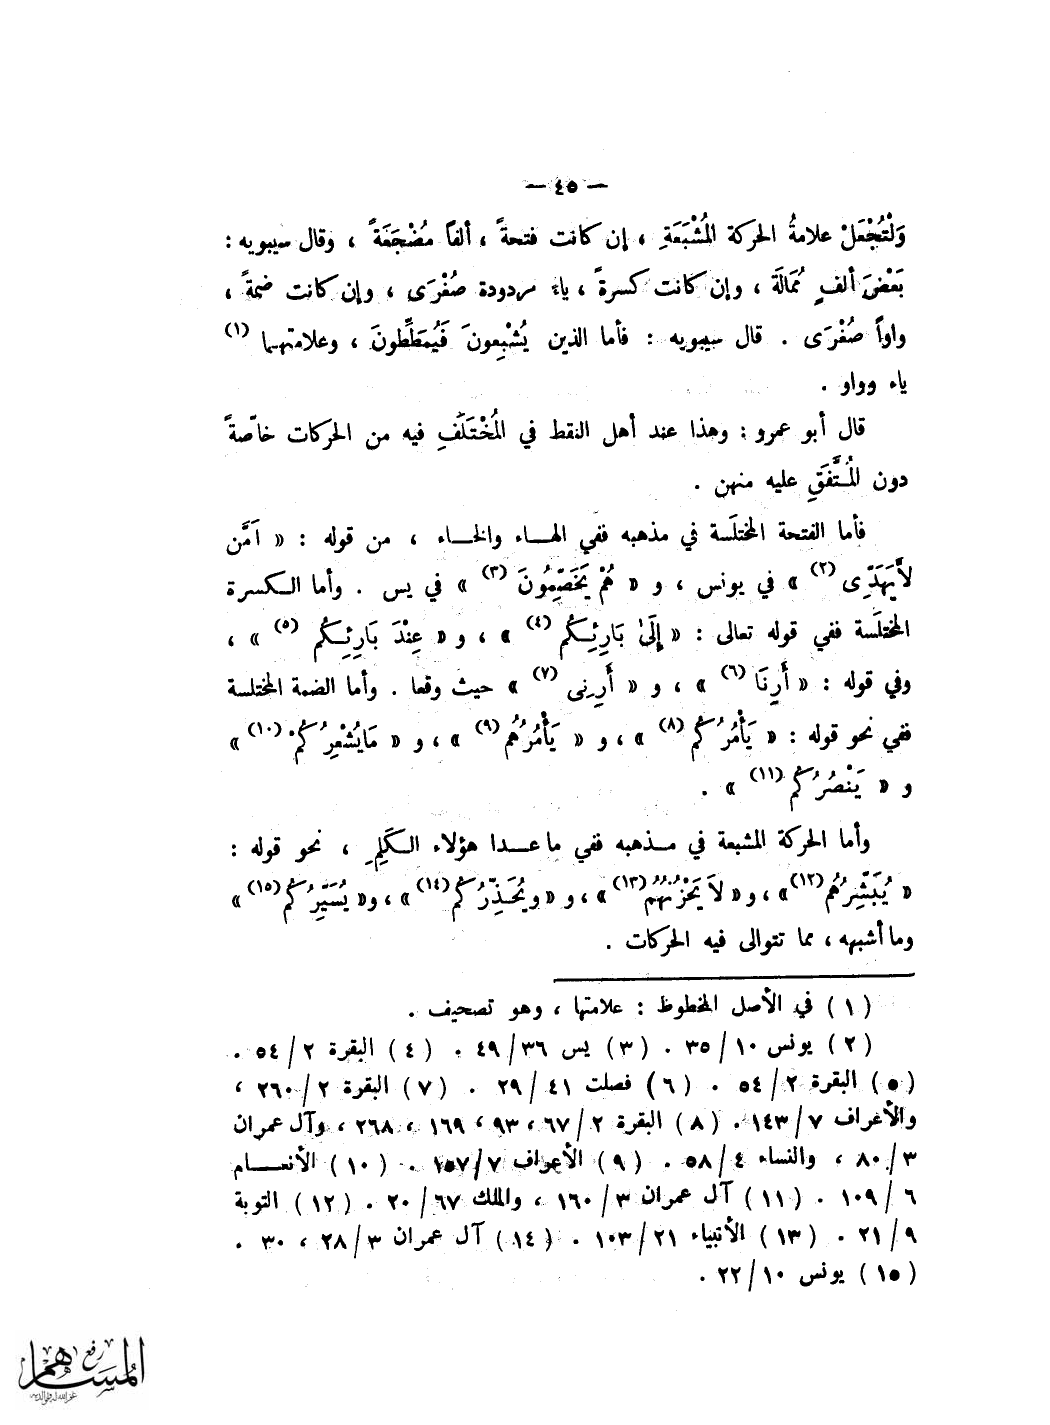 — ٤٥ —
وَلْتُجْعَلْ علامةُ الحركة المُشْبَعَةِ ، إن كانت فتحةً ، ألفاً مُضْجَعَةً ، وقال سيبويه :
بَعْضَ ألفٍ مُمَالَة ، وإن كانت كسرةً ، ياء مردودة صُغْرَى ، وإن كانت ضمةً ،
واواً صُغْرَى . قال سيبويه : فأما الذين يُشْبِعونَ فَيُمَطِّطونَ ، وعلامتهما (١)
ياء وواو .
قال أبو عمرو : وهذا عند أهل النقط في المُخْتَلَفِ فيه من الحركات خاصّةً
دون المُتَّفَقِ عليه منهن .
فأما الفتحة المختلَسة في مذهبه ففي الهاء والخاء ، من قوله : « اَمَّن
لاَّ يَهَدِّى (٢) » في يونس ، و « هُمْ يَخَصِّمُونَ (٣) » في يس . وأما الكسرة
المختلَسة ففي قوله تعالى : « إِلَىٰ بَارِئِكُم (٤) » ، و « عِنْدَ بَارِئِكُم (٥) » ،
وفي قوله : « أَرِنَا (٦) » ، و « أَرِنِى (٧) » حيث وقعا . وأما الضمة المختلسة
ففي نحو قوله : « يَأْمُرُكُم (٨) » ، و « يَأْمُرُهُم (٩) » ، و « مَايُشْعِرُكُمْ (١٠) »
و « يَنْصُرُكُم (١١) » .
وأما الحركة المشبعة في مذهبه ففي ما عدا هؤلاء الكَلِمِ ، نحو قوله :
« يُبَشِّرُهُم (١٢) » ، و « لاَ يَحْزُنُهُمُ (١٣) » ، و « ويُحَذِّرُكُم (١٤) » ، و « يُسَيِّرُكُم (١٥) »
وما أشبهه ، مما تتوالى فيه الحركات .
( ١ ) في الأصل المخطوظ : علامتها ، وهو تصحيف .
( ٢ ) يونس ١٠/ ٣٥ . ( ٣ ) يس ٣٦/ ٤٩ . ( ٤ ) البقرة ٢/ ٥٤ .
( ٥ ) البقرة ٢/ ٥٤ . ( ٦ ) فصلت ٤١/ ٢٩ . ( ٧ ) البقرة ٢/ ٢٦٠ ،
والأعراف ٧/ ١٤٣ . ( ٨ ) البقرة ٢/ ٦٧ ، ٩٣ ، ١٦٩ ، ٢٦٨ ، وآل عمران
٣/ ٨٠ ، والنساء ٤/ ٥٨ . ( ٩ ) الأعراف ٧/ ١٥٧ . ( ١٠ ) الأنعام
٦/ ١٠٩ . ( ١١ ) آل عمران ٣/ ١٦٠ ، والملك ٦٧/ ٢٠ . ( ١٢ ) التوبة
٩/ ٢١ . ( ١٣ ) الأنبياء ٢١/ ١٠٣ . ( ١٤ ) آل عمران ٣/ ٢٨ ، ٣٠ .
( ١٥ ) يونس ١٠/ ٢٢ .
رفع
المساهم